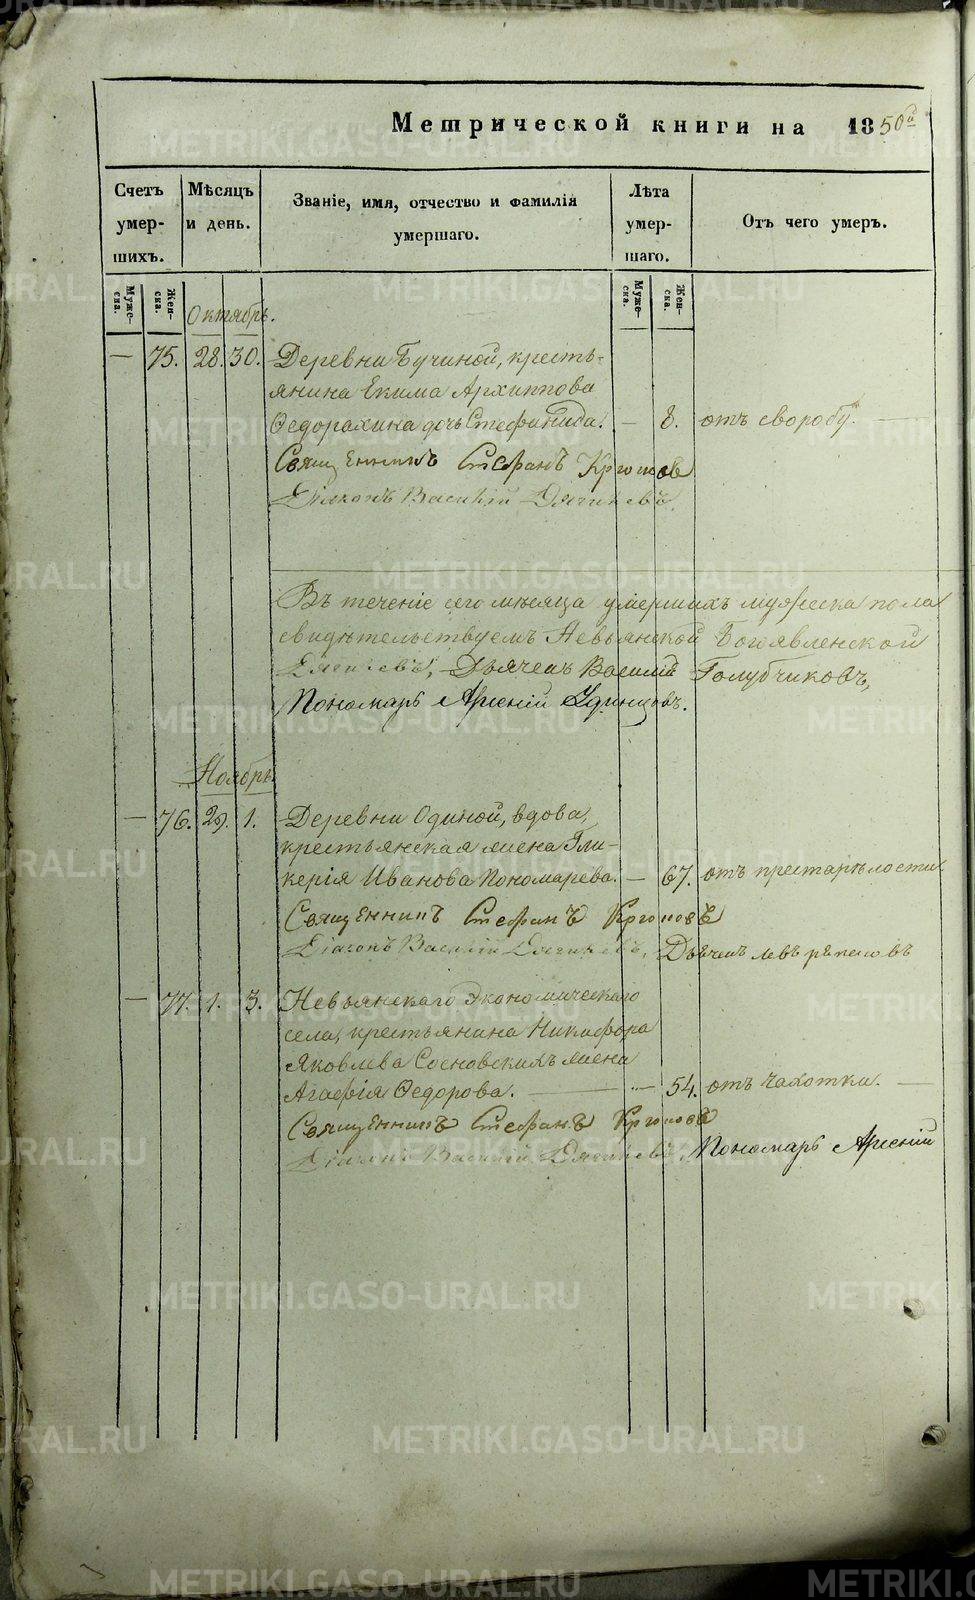 Метрической книги на 1850й
Счетъ умер-шихъ.
Мѣсяцъ и день.
Званіе, имя, отчество и фамилія умершаго.
Лѣта умер-шаго.
Отъ чего умеръ.
Муже-ска.
Жен-ска.
Муже-ска.
Жен-ска.
Октябрь.
— 75. 28. 30. Деревни Бучиной, кресть-
янина Екима Архиппова
Ѳедорахина дочь Стефанида. — 8. отъ своробу. —
Священникъ Стефанъ
Діаконъ Василій
Въ теченіе сего мѣсяца умершихъ мужеска пола
свидѣтельствуемъ Невьянской Богоявленской
Дьячекъ Василій Голубчиковъ,
Пономарь Арсеній Удинцовъ.
Ноябрь
— 76. 29. 1. Деревни Одиной, вдова,
крестьянская жена Гли-
керія Иванова Пономарева. — 67. отъ престарѣлости.
Священникъ Стефанъ
Діаконъ Василій Дьячекъ Левъ
— 77. 1. 3. Невьянскаго Экономическаго
села, крестьянина Никифора
Яковлева Сосновскихъ жена
Агафія Ѳедорова. — 54. отъ чахотки. —
Священникъ Стефанъ
Діаконъ Василій Пономарь Арсеній
METRIKI.GASO-URAL.RU